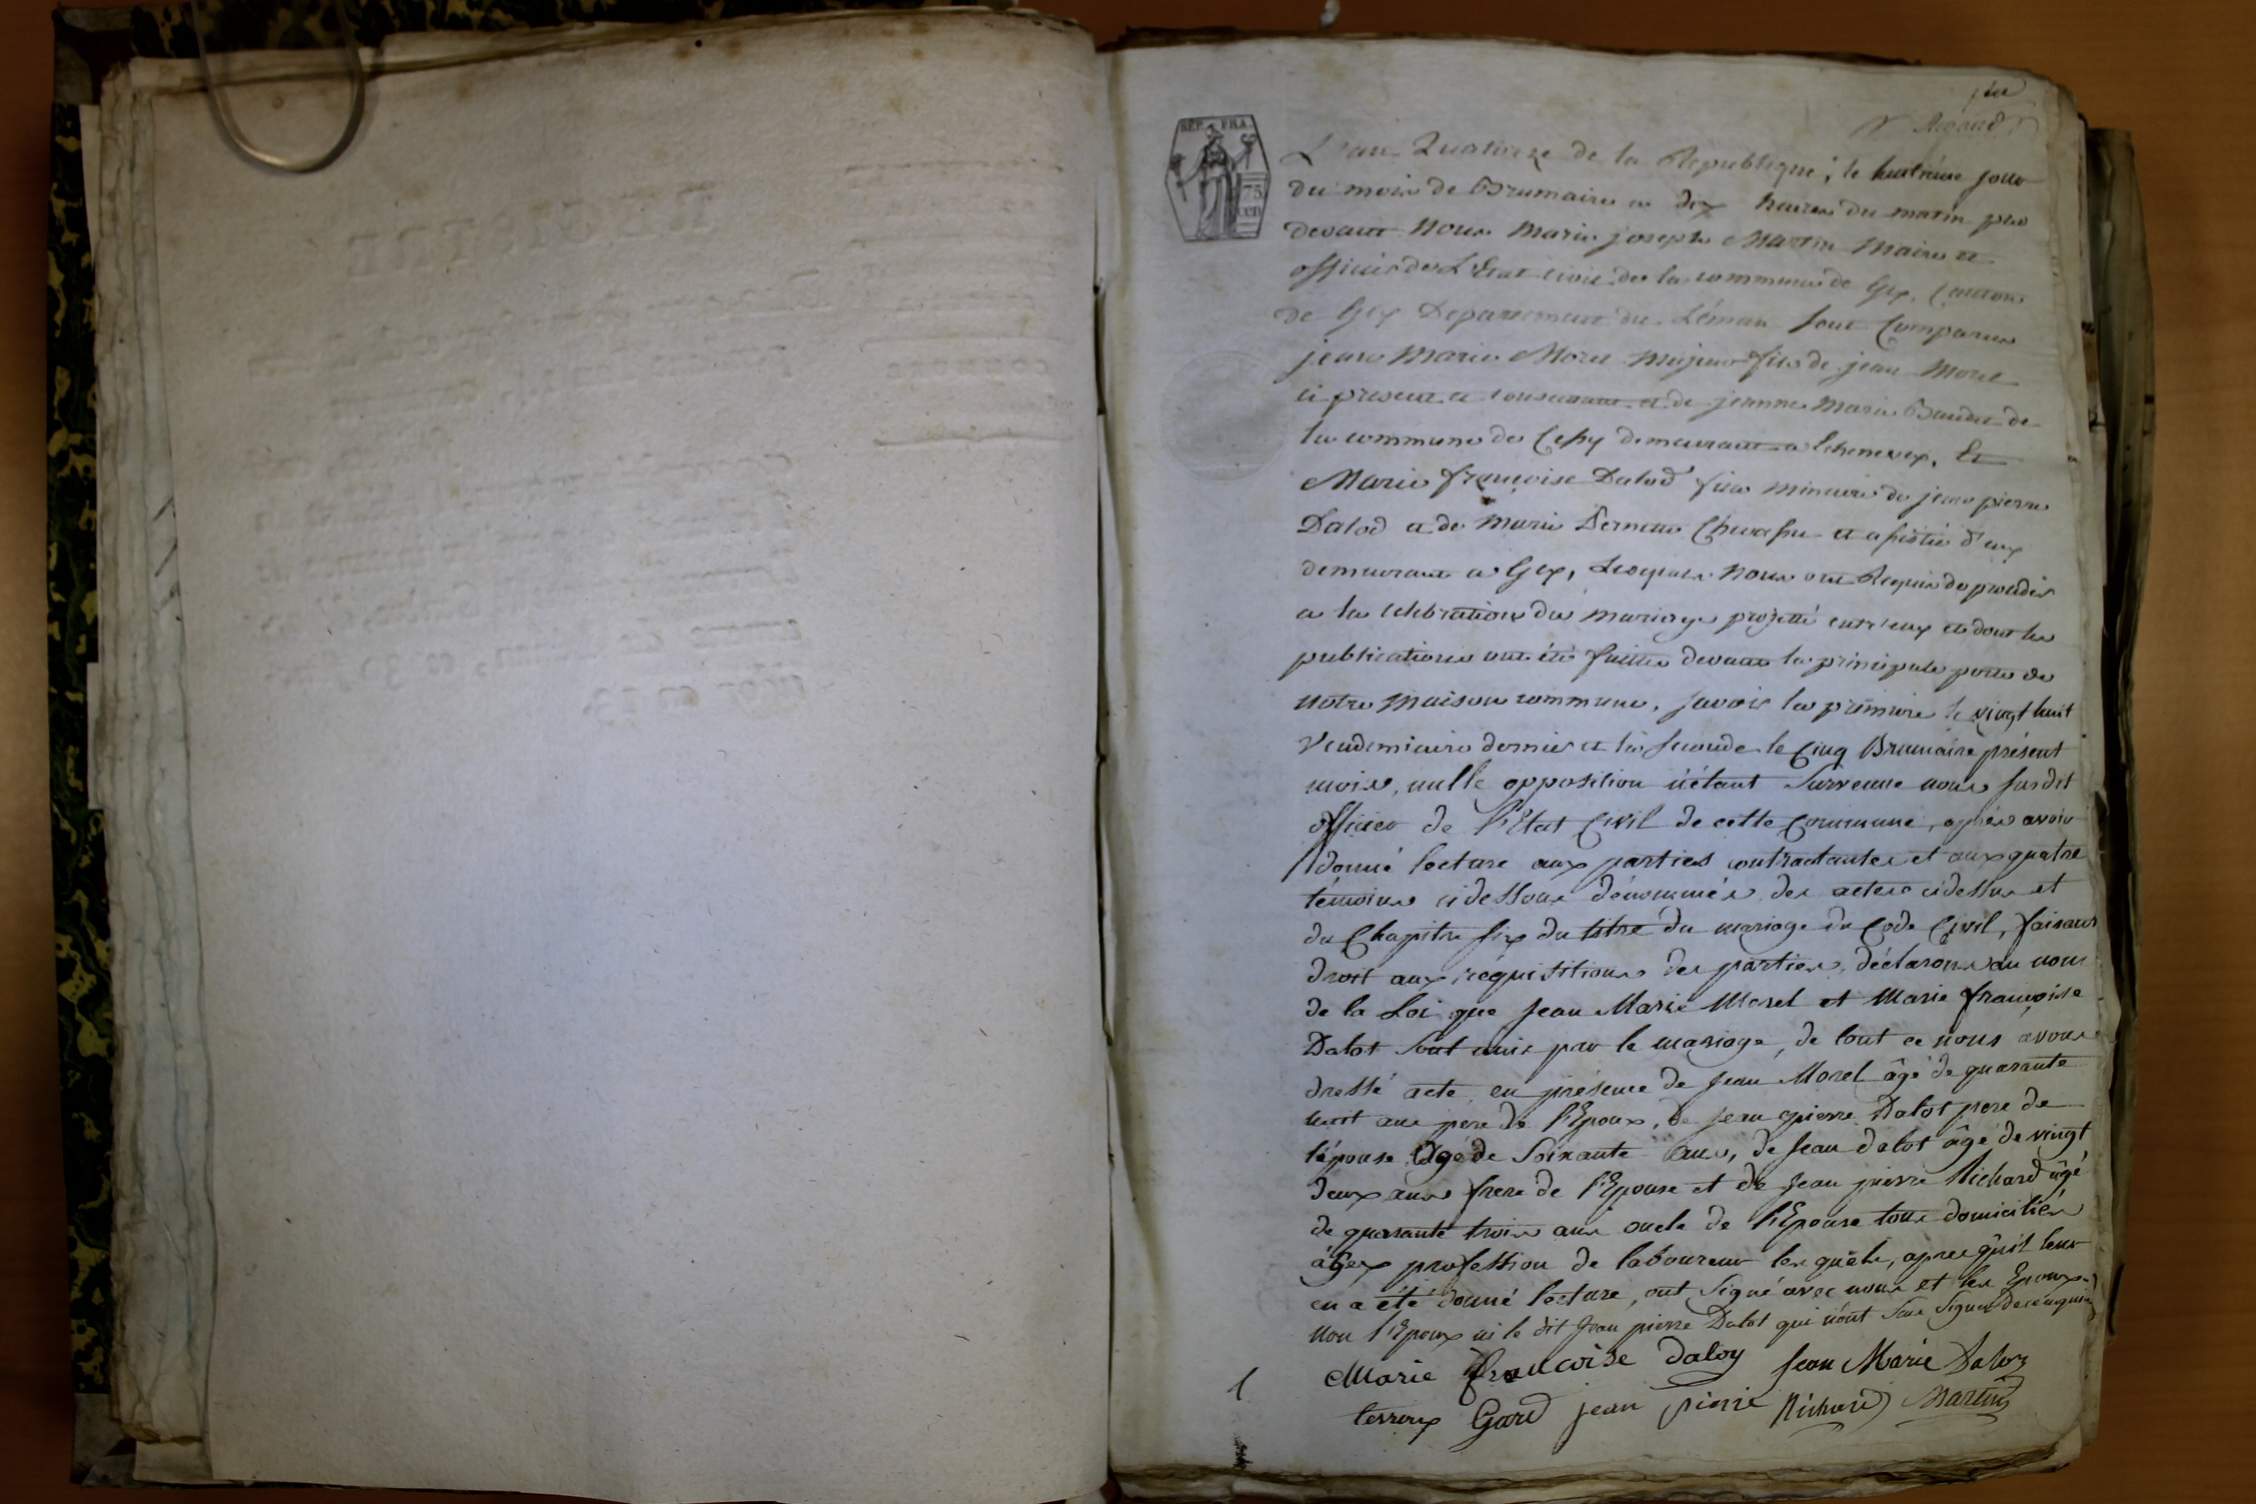 REP. FRA.
75
CEN
L'an Quatorze de la Republique, le huitième jour
du mois de Brumaire a dix heures du matin par
devant Nous Marie joseph Martin Maire et
officier de L'Etat civil de la commune de Gex, Canton
de Gex Departement du Léman sont Comparus
jean Marie Morel Majeur fils de jean Morel
ci present et consentant et de jeanne Marie Baudet de
la commune de Cessy demeurant a Echenevex, Et
Marie françoise Dalod fille mineure de jean pierre
Dalod et de Marie Pernette et assistée d'eux
demeurant a Gex, Lesquels nous ont Requis de proceder
a la célébration du mariage projetté entr'eux et dont les
publications ont été faittes devant la principale porte de
notre Maison commune, savoir la premiere le vingt huit
Vendemiaire dernier et la seconde le Cinq Brumaire présent
mois, nulle opposition n'étant Survenue nous susdit
officier de l'Etat Civil de cette Commune, après avoir
donné lecture aux parties contractantes et aux quatre
témoins cidessous dénommés des actes cidessus et
du Chapitre six du titre du mariage du Code Civil, faisant
droit aux réquisitions des parties, déclarons au nom
de la Loi que Jean Marie Morel et Marie françoise
Dalot Sont unis par le mariage, de tout ce nous avons
dressé acte en présence de Jean Morel âgé de quarante
huit ans pere de l'Epoux, de Jean pierre Dalot pere de
l'épouse âgé de Soixante ans, de Jean dalot âgé de vingt
deux ans frere de l'Epouse et de Jean pierre Richard âgé
de quarante trois ans oncle de l'Epouse tous domiciliés
à Gex profession de laboureur lesquels, apres qu'il leur
en a été donné lecture, ont Signé avec nous et les Epoux
non l'Epoux ni le dit Jean pierre Dalot qui n'ont Su Signer de ce enquis
Marie françoise daloz Jean Marie Daloz
terroux Gard jean pierre Richard Martin